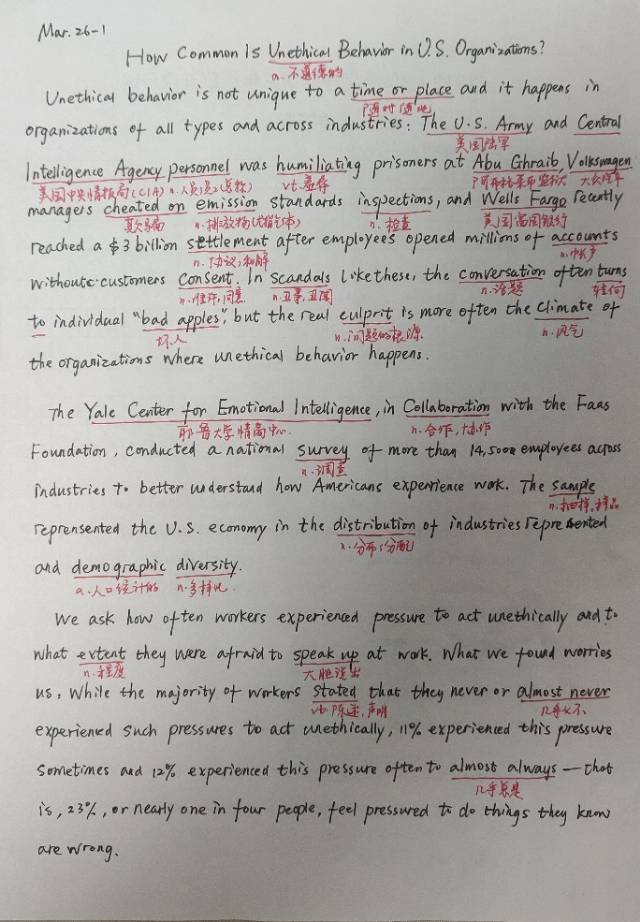 Mar. 26-1
How Common Is Unethical Behavior in U.S. Organizations?
a. 不道德的
Unethical behavior is not unique to a time or place and it happens in
随时随地
organizations of all types and across industries: The U.S. Army and Central
美国陆军
Intelligence Agency personnel was humiliating prisoners at Abu Ghraib, Volkswagen
美国中央情报局(CIA) n.人员;(总称) vt.羞辱 阿布格莱布监狱 大众汽车
managers cheated on emission standards inspections, and Wells Fargo recently
欺骗 n.排放物(尤指气体) n.检查 美国富国银行
reached a $3 billion settlement after employees opened millions of accounts
n.协议,和解 n.帐户
without customers consent. In scandals like these, the conversation often turns
n.准许,同意 n.丑事,丑闻 n.话题 转向
to individual "bad apples", but the real culprit is more often the climate of
坏人 n.问题的根源 n.风气
the organizations where unethical behavior happens.
The Yale Center for Emotional Intelligence, in Collaboration with the Faas
耶鲁大学情商中心 n.合作,协作
Foundation, conducted a national survey of more than 14,500 employees across
n.调查
industries to better understand how Americans experience work. The sample
n.抽样,样品
reprensented the U.S. economy in the distribution of industries represented
n.分布;分配
and demographic diversity.
a.人口统计的 n.多样化
We ask how often workers experienced pressure to act unethically and to
what extent they were afraid to speak up at work. What we found worries
n.程度 大胆说出
us, While the majority of workers stated that they never or almost never
vt.陈述,声明 几乎不
experienced such pressures to act unethically, 11% experienced this pressure
sometimes and 12% experienced this pressure often to almost always — that
几乎总是
is, 23%, or nearly one in four people, feel pressured to do things they know
are wrong.